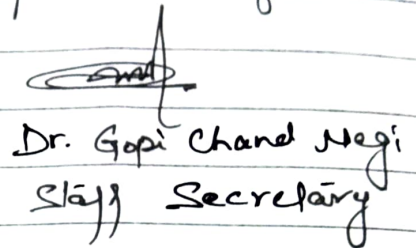 Dr. Gopi Chand Negi
Staff Secretary